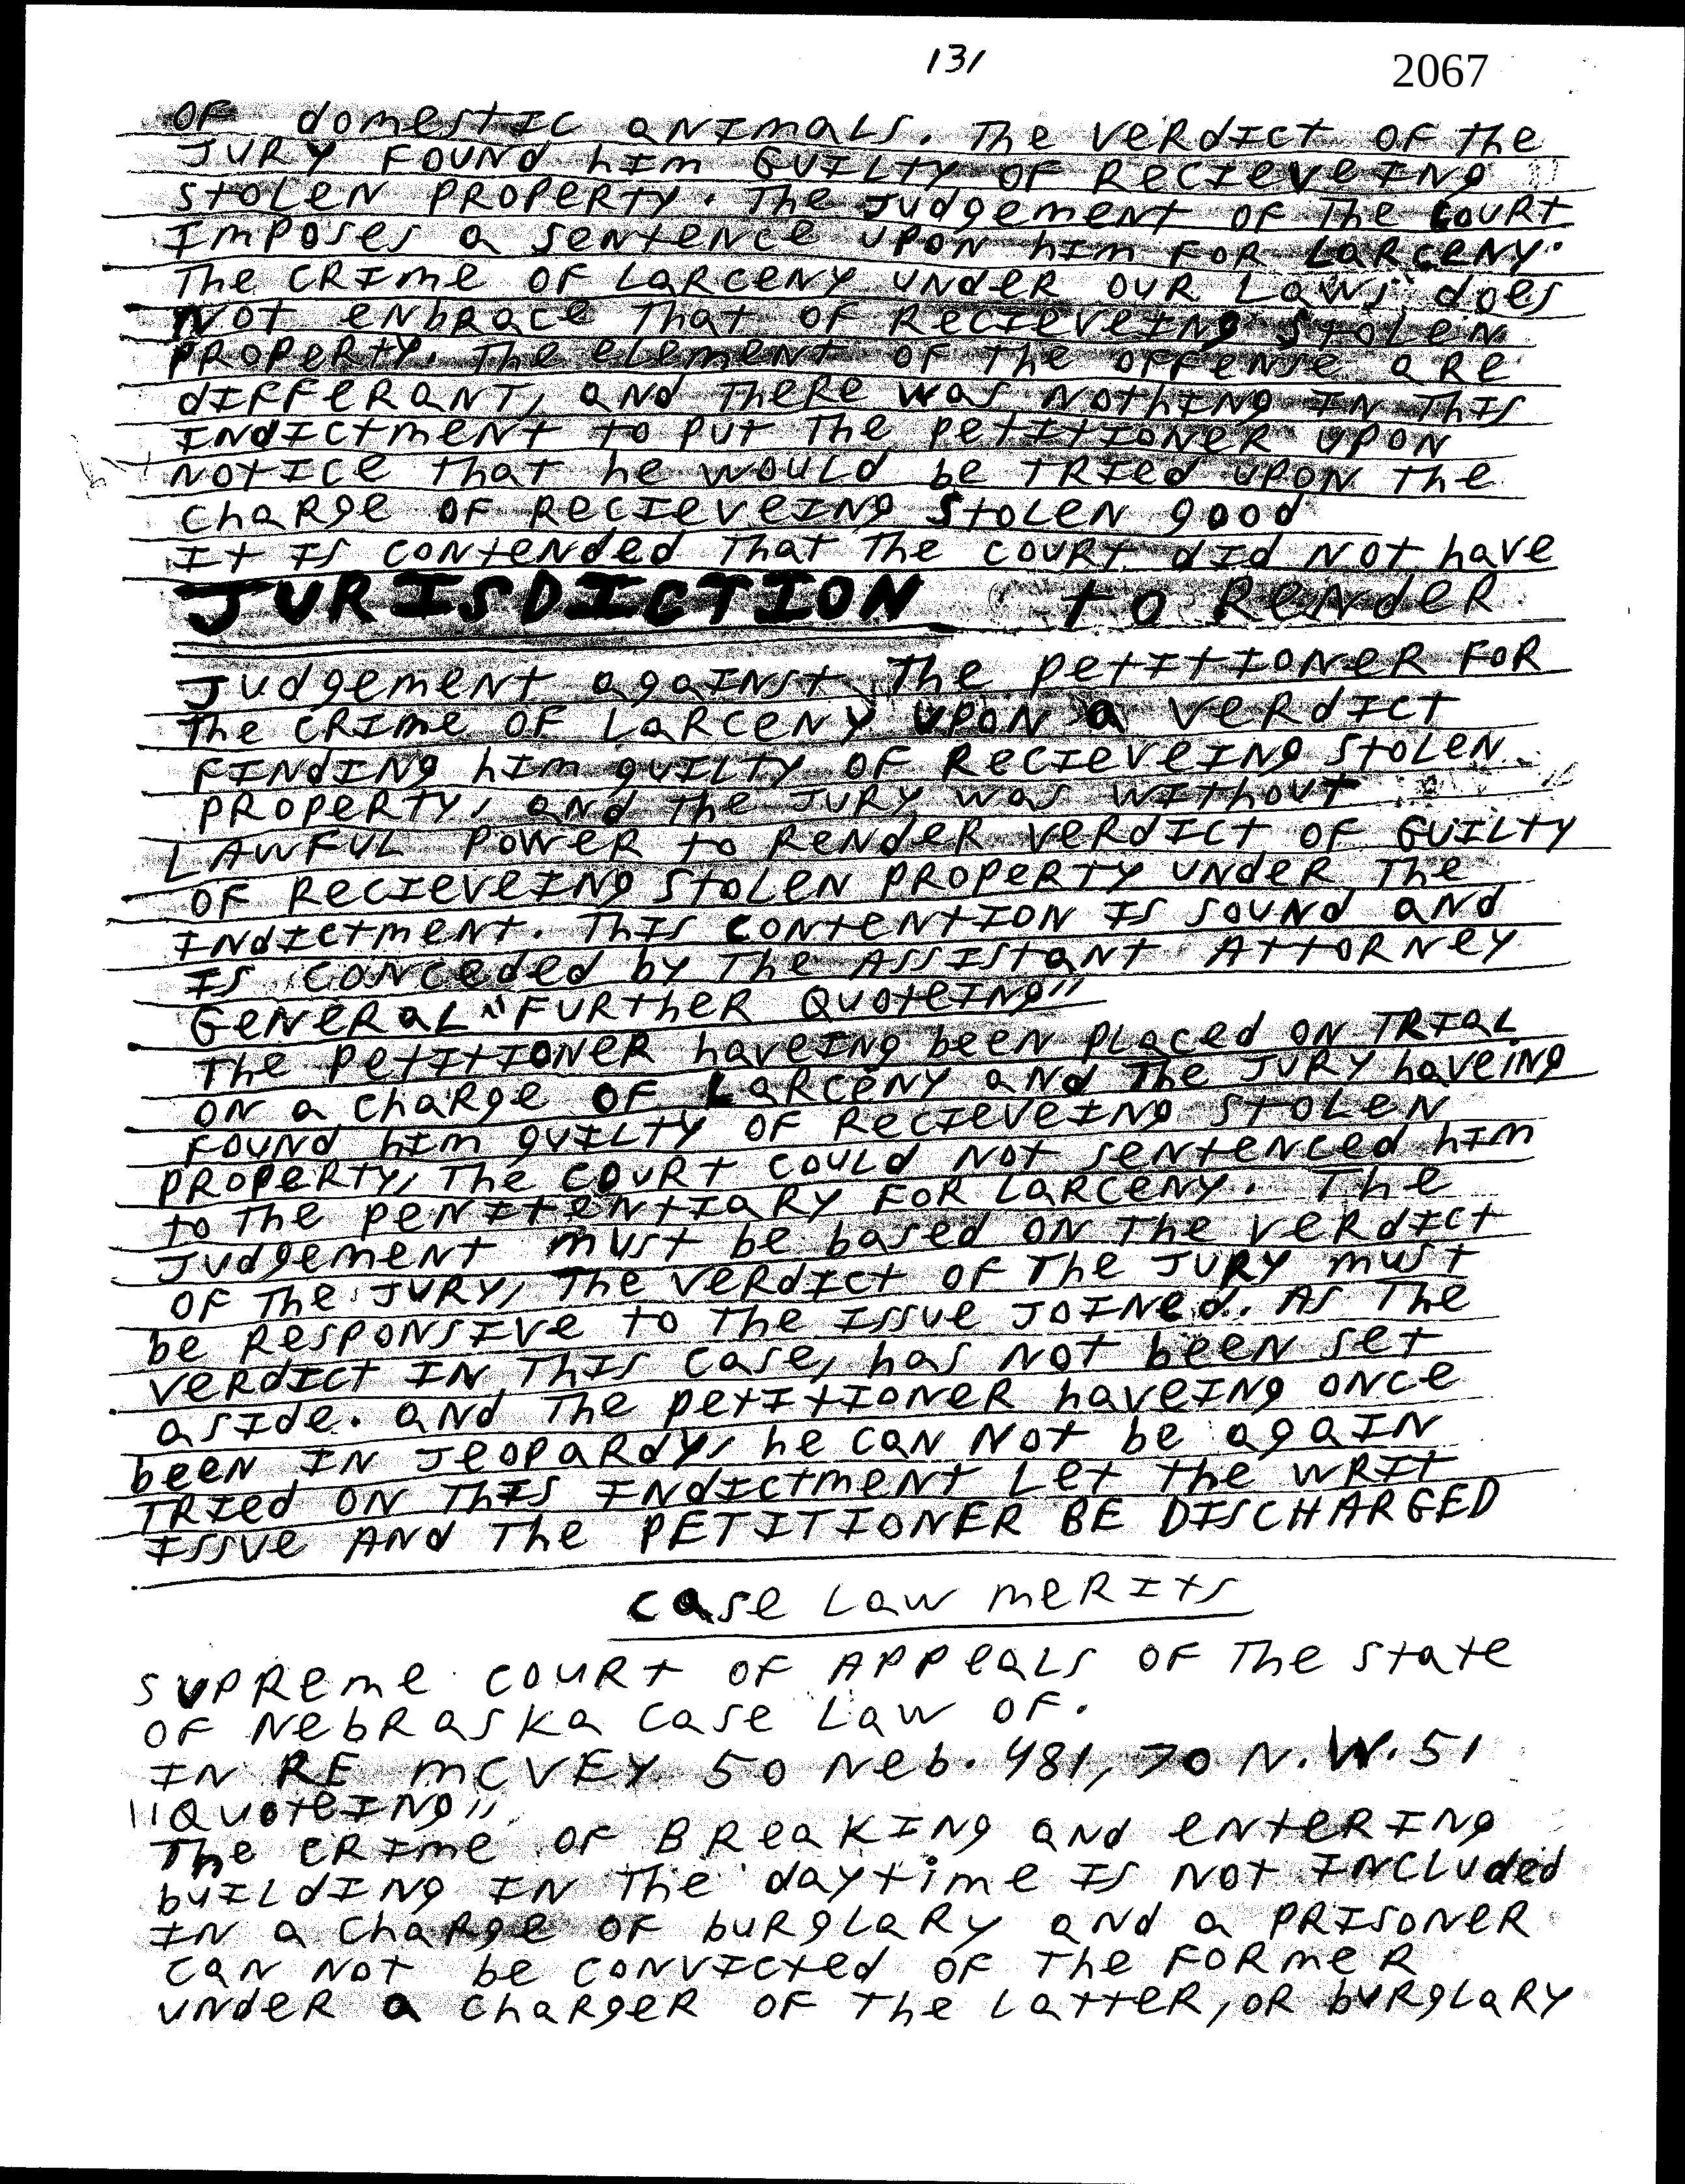 131
2067
OF domestIC aNImaLS. The VeRdICt OF the
JURY FOUNd hIm GUILTY OF ReCIeVeING
StOLeN PROPeRTY. The JUdgemeNt OF The COURt
ImPOSeS a SeNteNCe UPON hIm FOR LaRCeNY.
The CRIme OF LaRCeNY UNdeR OUR LawS does
NOt eNbRace That OF ReCIeVeING StOLeN
PROPeRTY. The eLemeNt OF The OFFeNSe aRe
dIFFeRaNT, aNd TheRe was NOthING IN ThIS
INdICtmeNt to PUt The PetItIONeR UPON
NOtICe that he wOULd be TRIed UPON The
ChaRge OF ReCIeVeING StOLeN good
It IS CONteNded That The COURt dId NOt have
JURISDICTION to ReNdeR
JUdgemeNt agaINSt The PetItIONeR FOR
The CRIme OF LaRCeNY UPON a VeRdICT
FINdING hIm gUILTY OF ReCIeVeING StOLeN
PROPeRTY, aNd The JURY was WIThOUt
LAWFUL POWeR to ReNdeR VeRdICT OF GUILTY
OF ReCIeVeING StOLeN PROPeRTY UNdeR The
INdICtmeNt. ThIS CONteNtION IS SOUNd aNd
IS CONCeded by The ASSIStaNt AttORNey
GeNeRaL "FURtheR QUOteING"
The PetItIONeR haveING beeN PLaced ON TRIaL
ON a ChaRge OF LaRCeNY aNd The JURY haveiNg
FOUNd hIm gUILTY OF ReCIeVeING StOLeN
PROPeRTY, The COURt COULd NOt SeNteNCed hIm
to The PeNIteNtIaRY FOR LaRCeNY. The
JUdgemeNt mUSt be based ON The VeRdICt
OF The JURY, The VeRdICt OF The JURY mUSt
be ReSPONSIVe to The ISSUe JOINed. AS The
VeRdICt IN ThIS Case, has NOt beeN Set
aSIde. aNd The PetItIONeR haveING ONCe
beeN IN JeOPaRdY, he CaN NOt be agaIN
TRIed ON ThIS INdICtmeNt Let the WRIt
ISSUe ANd The PETITIONER BE DISCHARGED
Case Law meRItS
SUPReme COURt OF APPeaLS OF The State
OF NebRaSka Case Law OF.
IN RE MCVEY 50 Neb. 481, 70 N.W. 51
"QUOteING"
The CRIme OF BReaKING aNd eNteRING
bUILdING IN The daytime IS NOt INCLUded
IN a ChaRge OF bURgLaRy aNd a PRISONeR
CaN NOt be CONVICted OF The FORmeR
UNdeR a ChaRgeR OF The LatteR, OR bURgLaRY